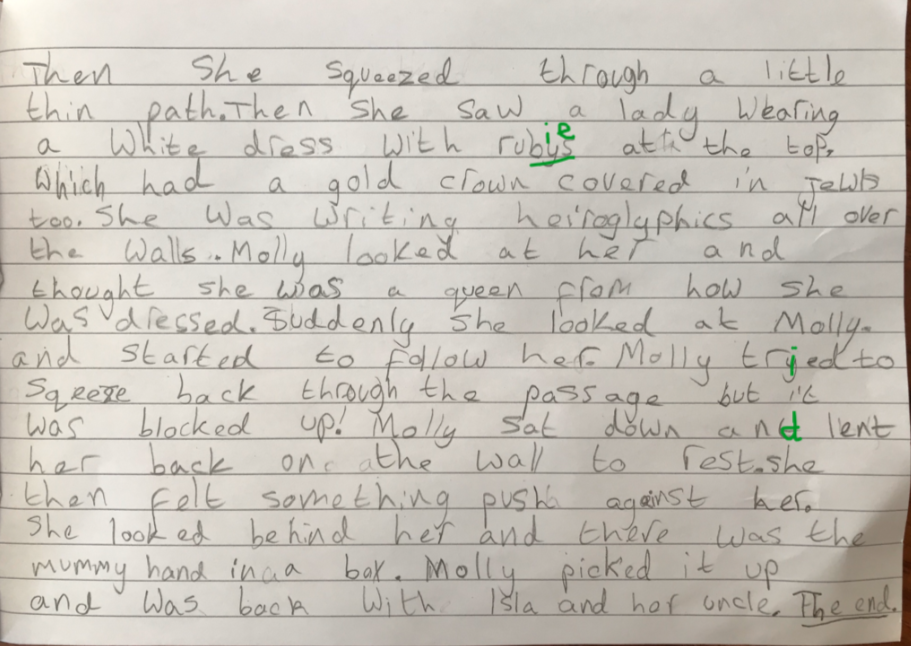 Then She squeezed through a little
thin path. Then she saw a lady wearing
a white dress with rubies at the top,
Which had a gold crown covered in Jewls
too. She was writing heiroglyphics all over
the walls.. Molly looked at her and
thought she was a queen from how she
was dressed. Suddenly she looked at Molly.
and started to follow her. Molly tried to
squeeze back through the passage but it
was blocked up! Molly sat down and lent
her back on the wall to rest. she
then felt something push against her.
She looked behind her and there was the
mummy hand in a box. Molly picked it up
and was back with Isla and her uncle. The end.